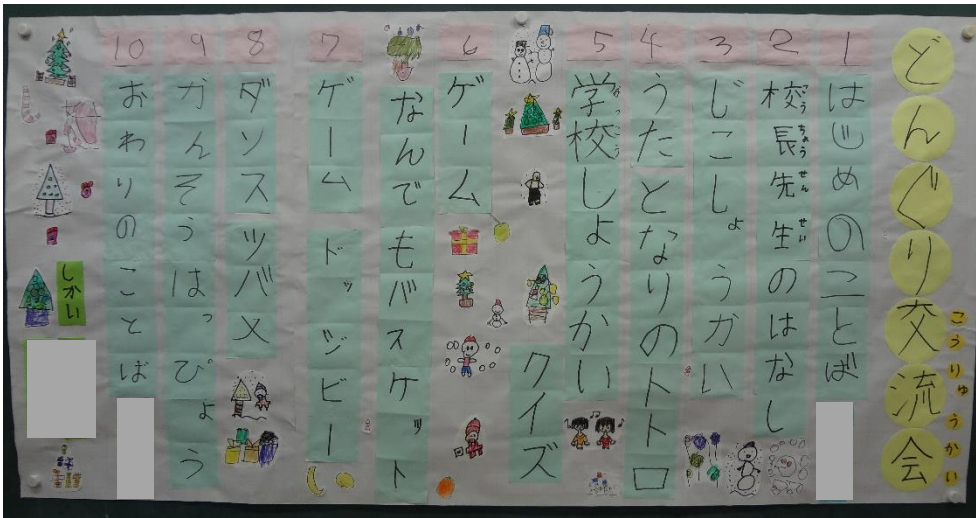 どんぐり交流会
こうりゅうかい
1 はじめのことば
2 校長先生のはなし
3 じこしょうかい
4 うたとなりのトトロ
5 学校しょうかい
クイズ
6 ゲーム
なんでもバスケット
7 ゲーム ドッジビー
8 ダンス ツバメ
9 かんそうはっぴょう
10 おわりのことば
しかい